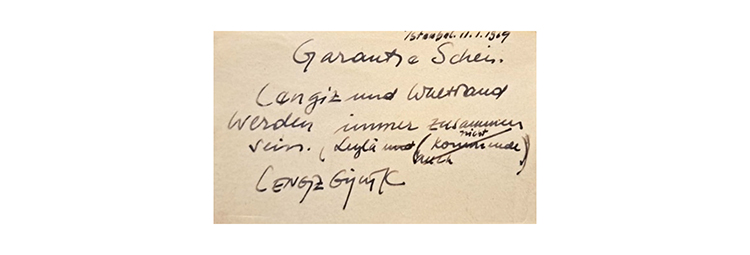 Istanbul. 11.1.1969
Garantie Schein.
Cengiz und Waltraud
werden immer zusammen
sein. (Leylâ und (kommende)
nicht
auch
CENGİZ